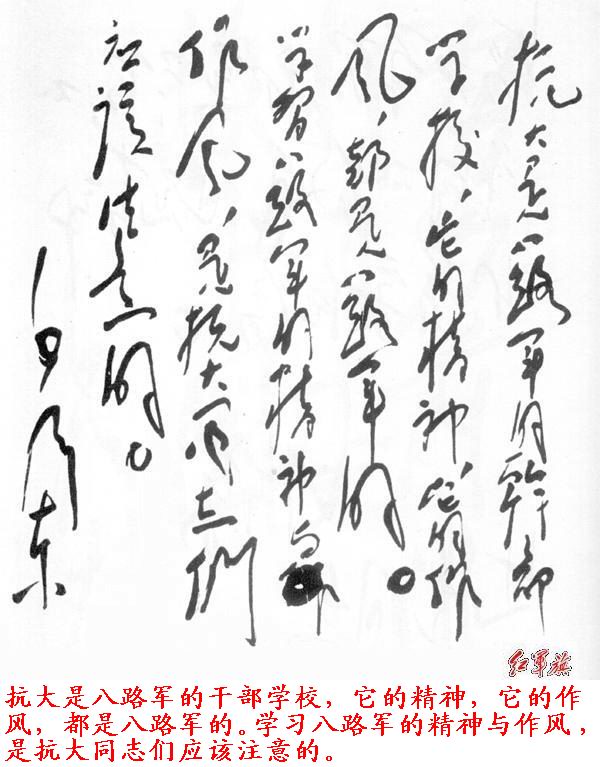 抗大是八路军的幹部
学校，它的精神，它的作
风，都是八路军的。
学習八路军的精神与
作风，是抗大同志們
应该注意的。
毛泽东
红军旗
抗大是八路军的干部学校，它的精神，它的作
风，都是八路军的。学习八路军的精神与作风，
是抗大同志们应该注意的。